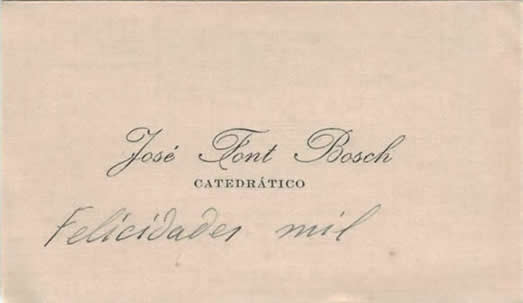 José Font Bosch
CATEDRÁTICO
Felicidades mil